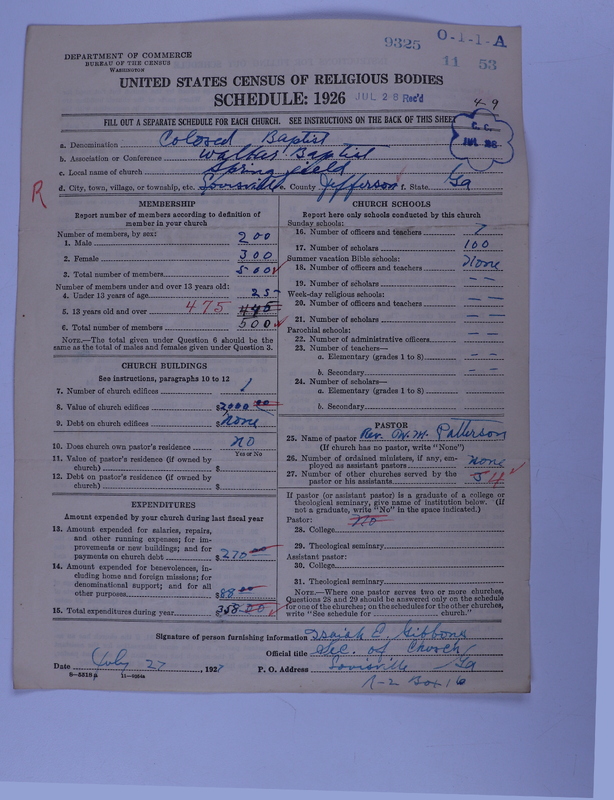 9325 0-1-1-A
11 53
DEPARTMENT OF COMMERCE
BUREAU OF THE CENSUS
WASHINGTON
UNITED STATES CENSUS OF RELIGIOUS BODIES
SCHEDULE: 1926 JUL 28 Rec'd
49
FILL OUT A SEPARATE SCHEDULE FOR EACH CHURCH. SEE INSTRUCTIONS ON THE BACK OF THIS SHEET
C. C.
JUL
a. Denomination Colored Baptist
b. Association or Conference Walker Baptist
c. Local name of church Springfield
d. City, town, village, or township, etc. Louisville e. County Jefferson f. State Ga
R
MEMBERSHIP
Report number of members according to definition of
member in your church
Number of members, by sex:
1. Male 200
2. Female 300
3. Total number of members 500
Number of members under and over 13 years old:
4. Under 13 years of age 25
5. 13 years old and over 475 475
6. Total number of members 500
NOTE.—The total given under Question 6 should be the
same as the total of males and females given under Question 3.
CHURCH BUILDINGS
See instructions, paragraphs 10 to 12
7. Number of church edifices 1
8. Value of church edifices $2000 00
9. Debt on church edifices $None
10. Does church own pastor's residence? NO
Yes or No
11. Value of pastor's residence (if owned by
church) $
12. Debt on pastor's residence (if owned by
church) $
EXPENDITURES
Amount expended by your church during last fiscal year
13. Amount expended for salaries, repairs,
and other running expenses; for im-
provements or new buildings; and for
payments on church debt $270 00
14. Amount expended for benevolences, in-
cluding home and foreign missions; for
denominational support; and for all
other purposes $88 00
15. Total expenditures during year 358.00
CHURCH SCHOOLS
Report here only schools conducted by this church
Sunday schools:
16. Number of officers and teachers 7
17. Number of scholars 100
Summer vacation Bible schools:
18. Number of officers and teachers None
19. Number of scholars – –
Week-day religious schools:
20. Number of officers and teachers – –
21. Number of scholars – –
Parochial schools:
22. Number of administrative officers
23. Number of teachers—
a. Elementary (grades 1 to 8) – –
b. Secondary – –
24. Number of scholars—
a. Elementary (grades 1 to 8)
b. Secondary
PASTOR
25. Name of pastor Rev. W. M. Patterson
(If church has no pastor, write "None")
26. Number of ordained ministers, if any, em-
ployed as assistant pastors none
27. Number of other churches served by the
pastor or his assistants 4
If pastor (or assistant pastor) is a graduate of a college or
theological seminary, give name of institution below. (If
not a graduate, write "No" in the space indicated.)
Pastor: No
28. College
29. Theological seminary
Assistant pastor:
30. College
31. Theological seminary
NOTE.—Where one pastor serves two or more churches,
Questions 28 and 29 should be answered only on the schedule
for one of the churches; on the schedules for the other churches,
write "See schedule for church."
Signature of person furnishing information Isaiah D. Gibbons
Official title Sec. of Church
Date July 27, 1927 P. O. Address Louisville Ga
R-2 Box 16